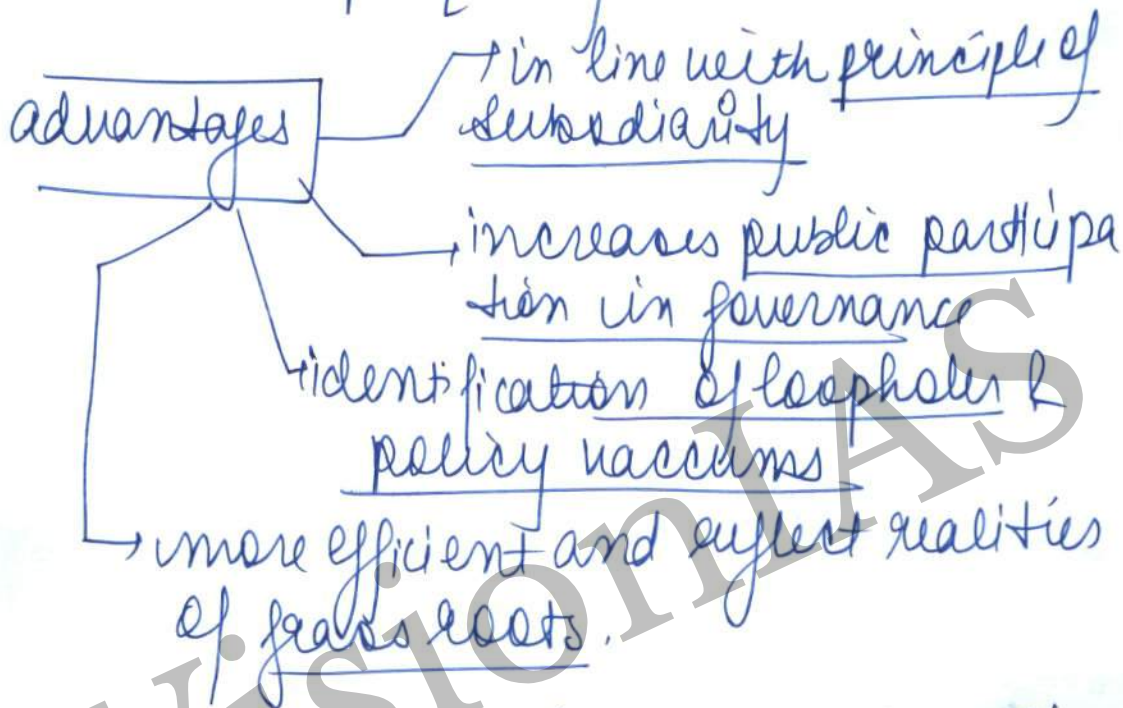 in line with principle of
advantages
subsdiarity
increases public participa
tion in governance
identification of loopholes &
policy vaccums
more efficient and reflect realities
of grass roots.
VisionIAS